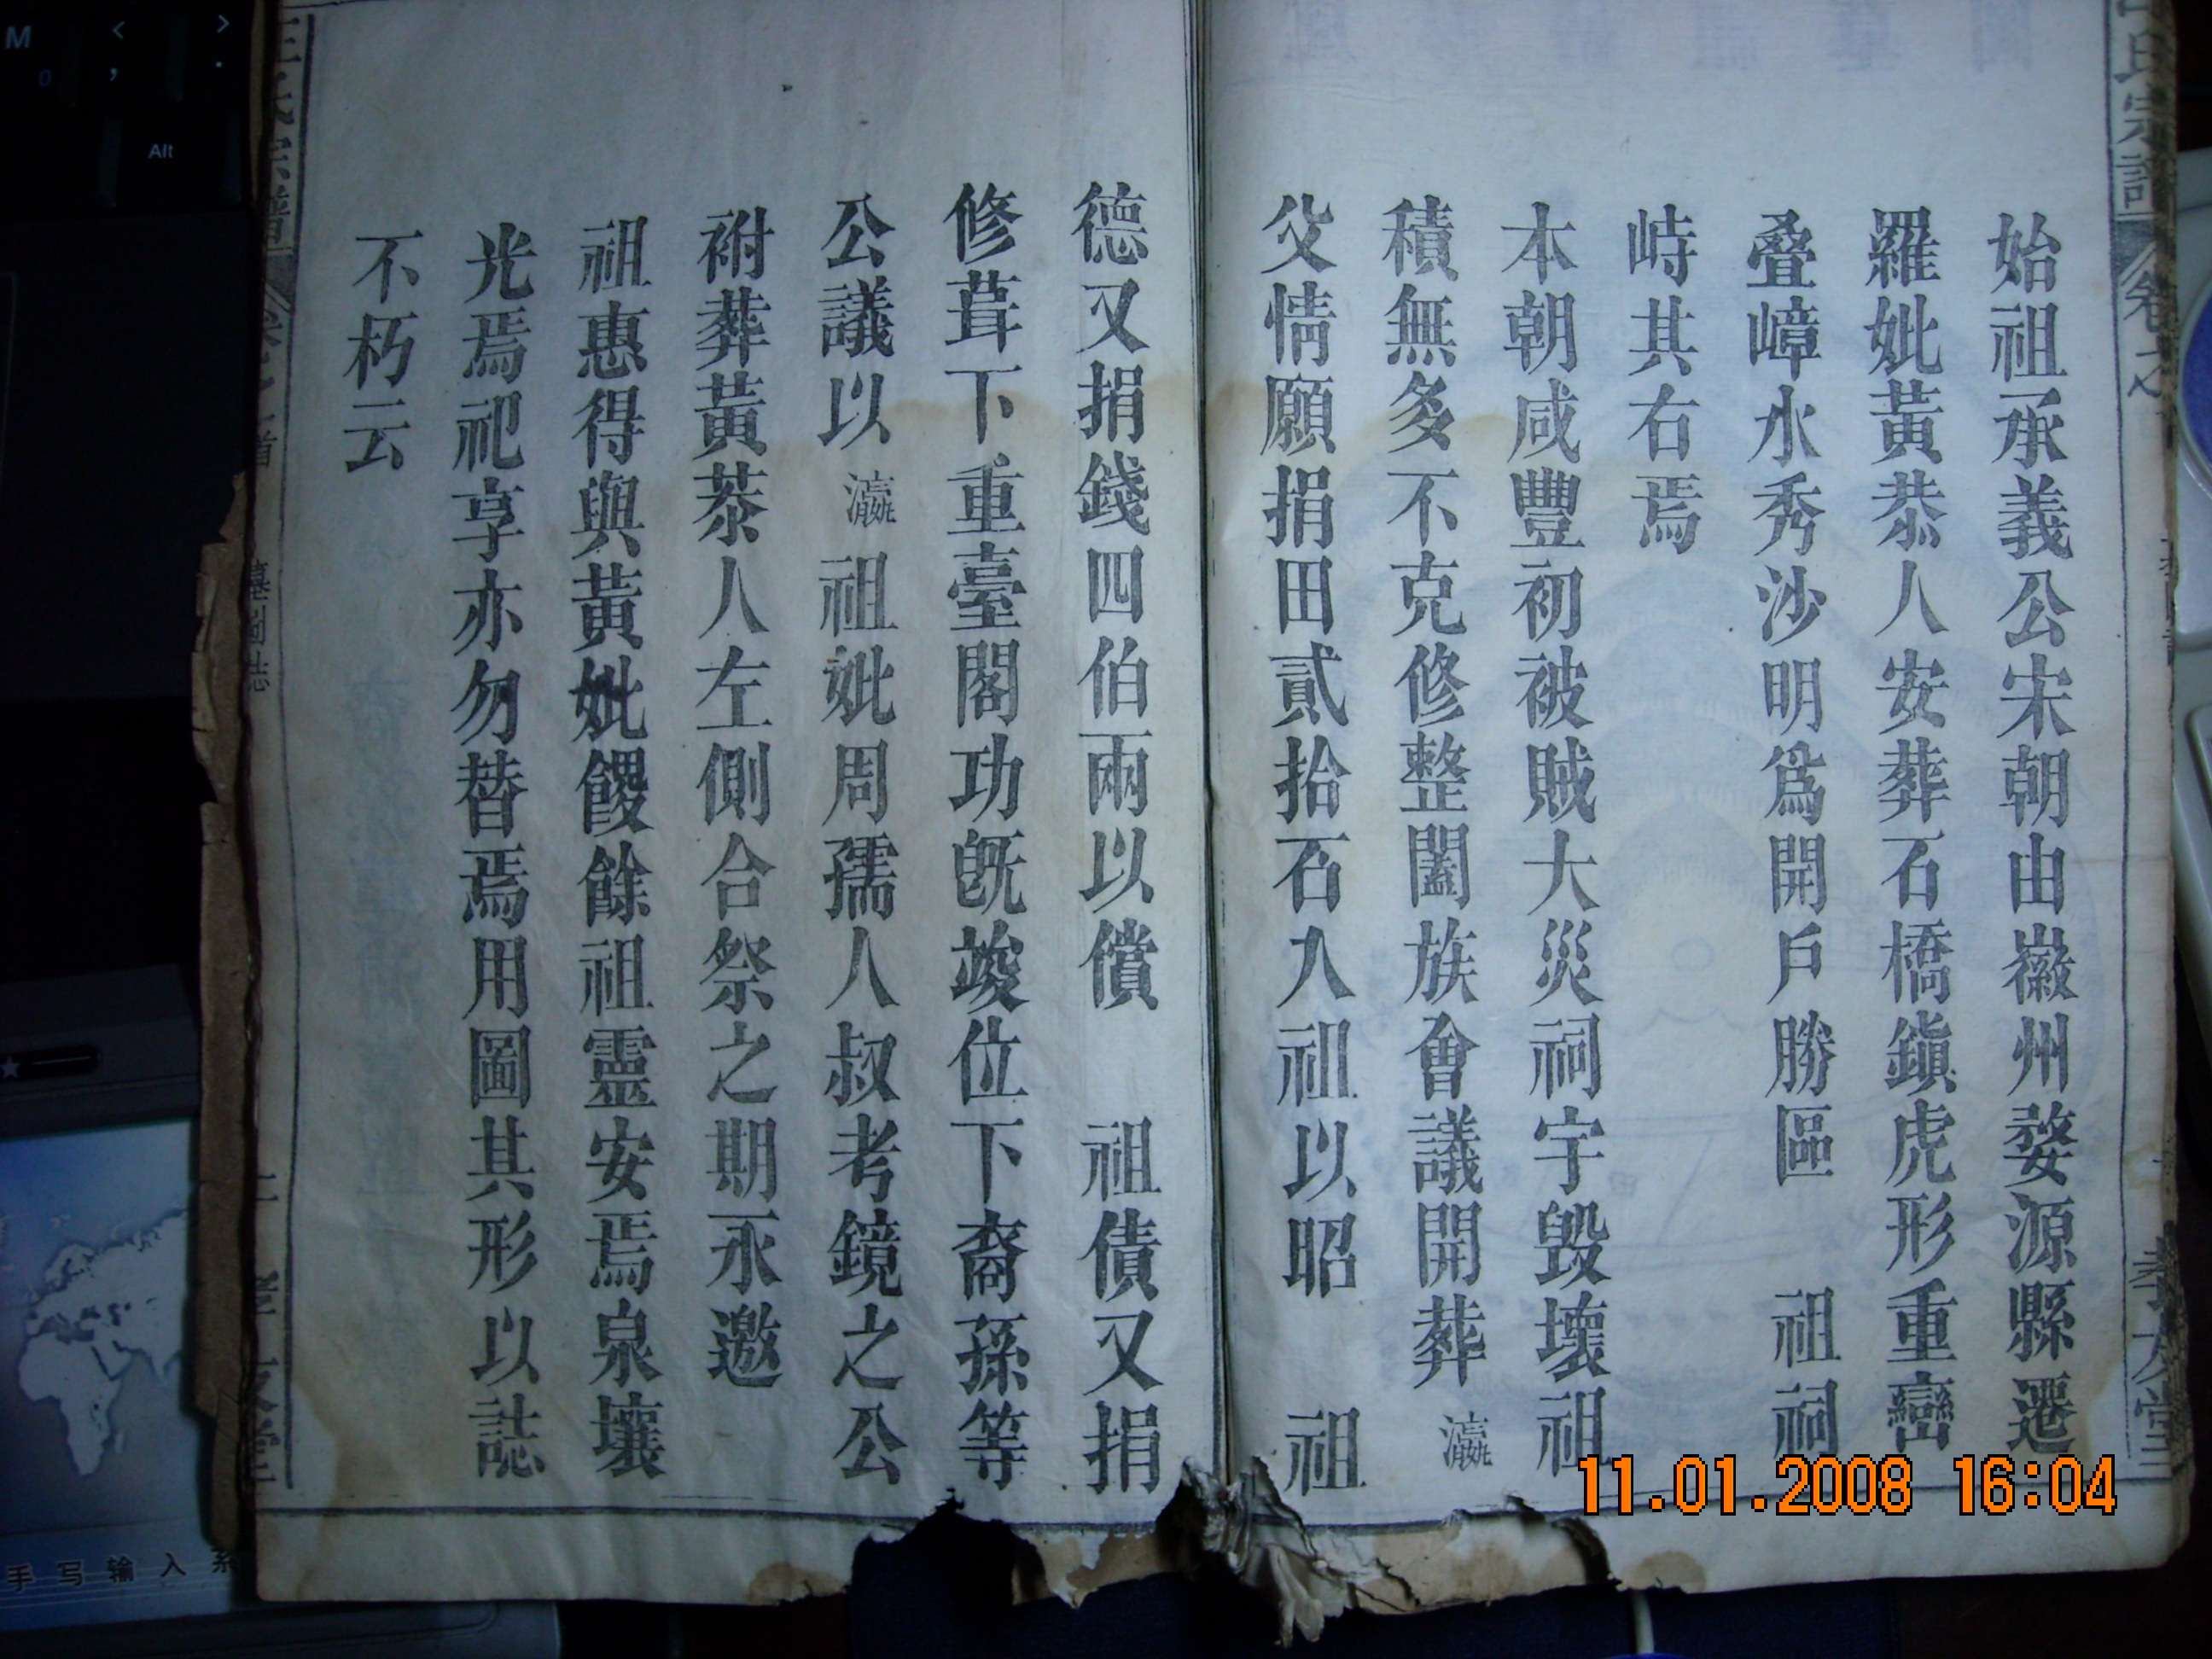 始祖承義公宋朝由徽州婺源縣遷
羅妣黃恭人安葬石橋鎮虎形重巒
疊嶂水秀沙明爲開戶勝區 祖祠
峙其右焉
本朝咸豐初被賊大災祠宇毀壞祖
積無多不克修整闔族會議開葬瀛清姚
父情願捐田貳拾石入祖以昭 祖
德又捐錢四伯兩以償 祖債又捐
修葺下重臺閣功旣竣位下裔孫等
公議以瀛清姚祖妣周孺人叔考鏡之公
祔葬黃恭人左側合祭之期永邀
祖惠得與黃妣餕餘祖靈安焉泉壤
光焉祀享亦勿替焉用圖其形以誌
不朽云
氏宗譜 卷之 義方堂
王氏宗譜 卷之首 墓圖誌 堂
M < , > . 0
Alt
手写输入系
11.01.2008 16:04